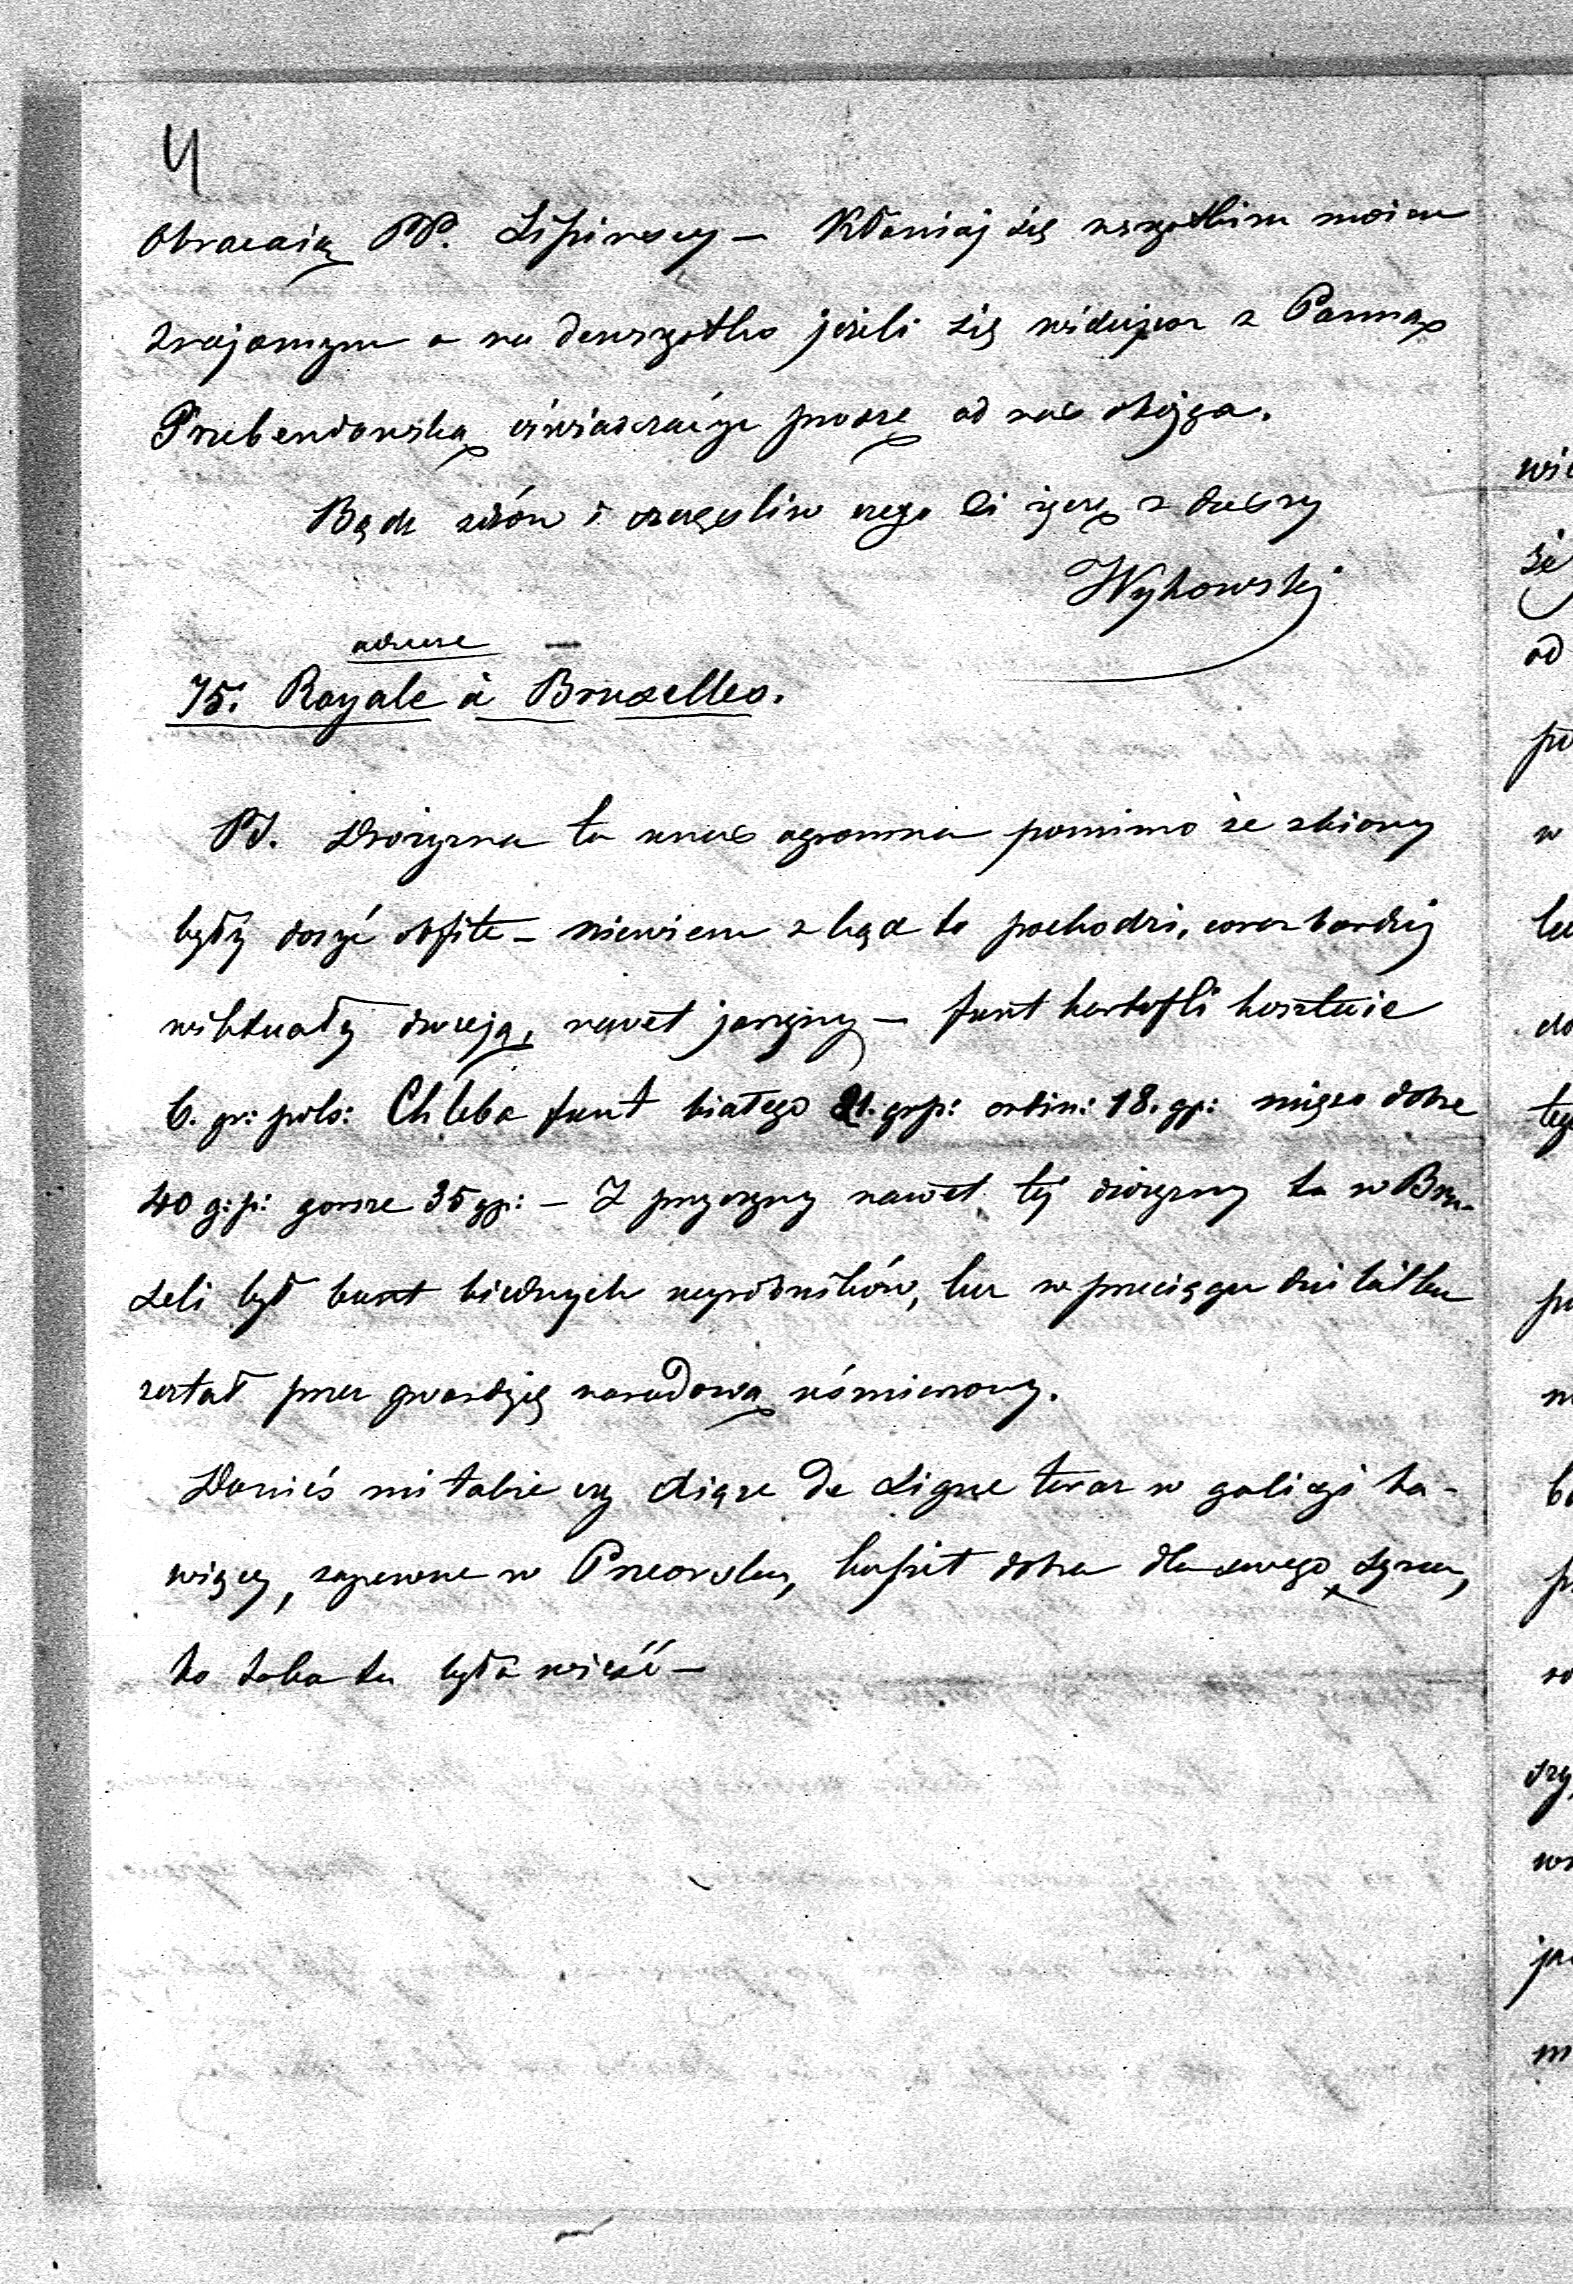 4
obracaią PP. Lipinscy — Kłaniaj się wszystkim moim
znajomym a na dewszystko jeżeli się widujesz z Panną
Przebendowską oświadczaiąc proszę od nas obojga.
Bądz zdrów i szczęśliw czego Ci życzę z duszy
Wykowskj
adresse
75. Royale à Bruxelles.
PS. Drożyzna tu u nas ogromna pomimo że zbiory
były dosyć obfite – niewiem z kąd to pochodzi, coraz bardziej
wiktuały drożeją, nawet jarzyny – funt kartofli kosztuie
6. gr: pols: Chleba funt białego 21. grp: ordin: 18. gp: mięso dobre
40 g:p: gorsze 35 gp: – Z przyczyny nawet tej drożyzny tu w Bru-
xeli był bunt biednych wyrobników, lecz w przeciągu dni kilku
został przez gwardyię narodową uśmierzony.
Donieś mi także czy Xiąże de Ligne teraz w galicyi ba-
wiący, zapewne w Przeorsku, kupił dobra dla swego syna,
bo taka tu była wieść –
wie
że
od
po
w
do
m